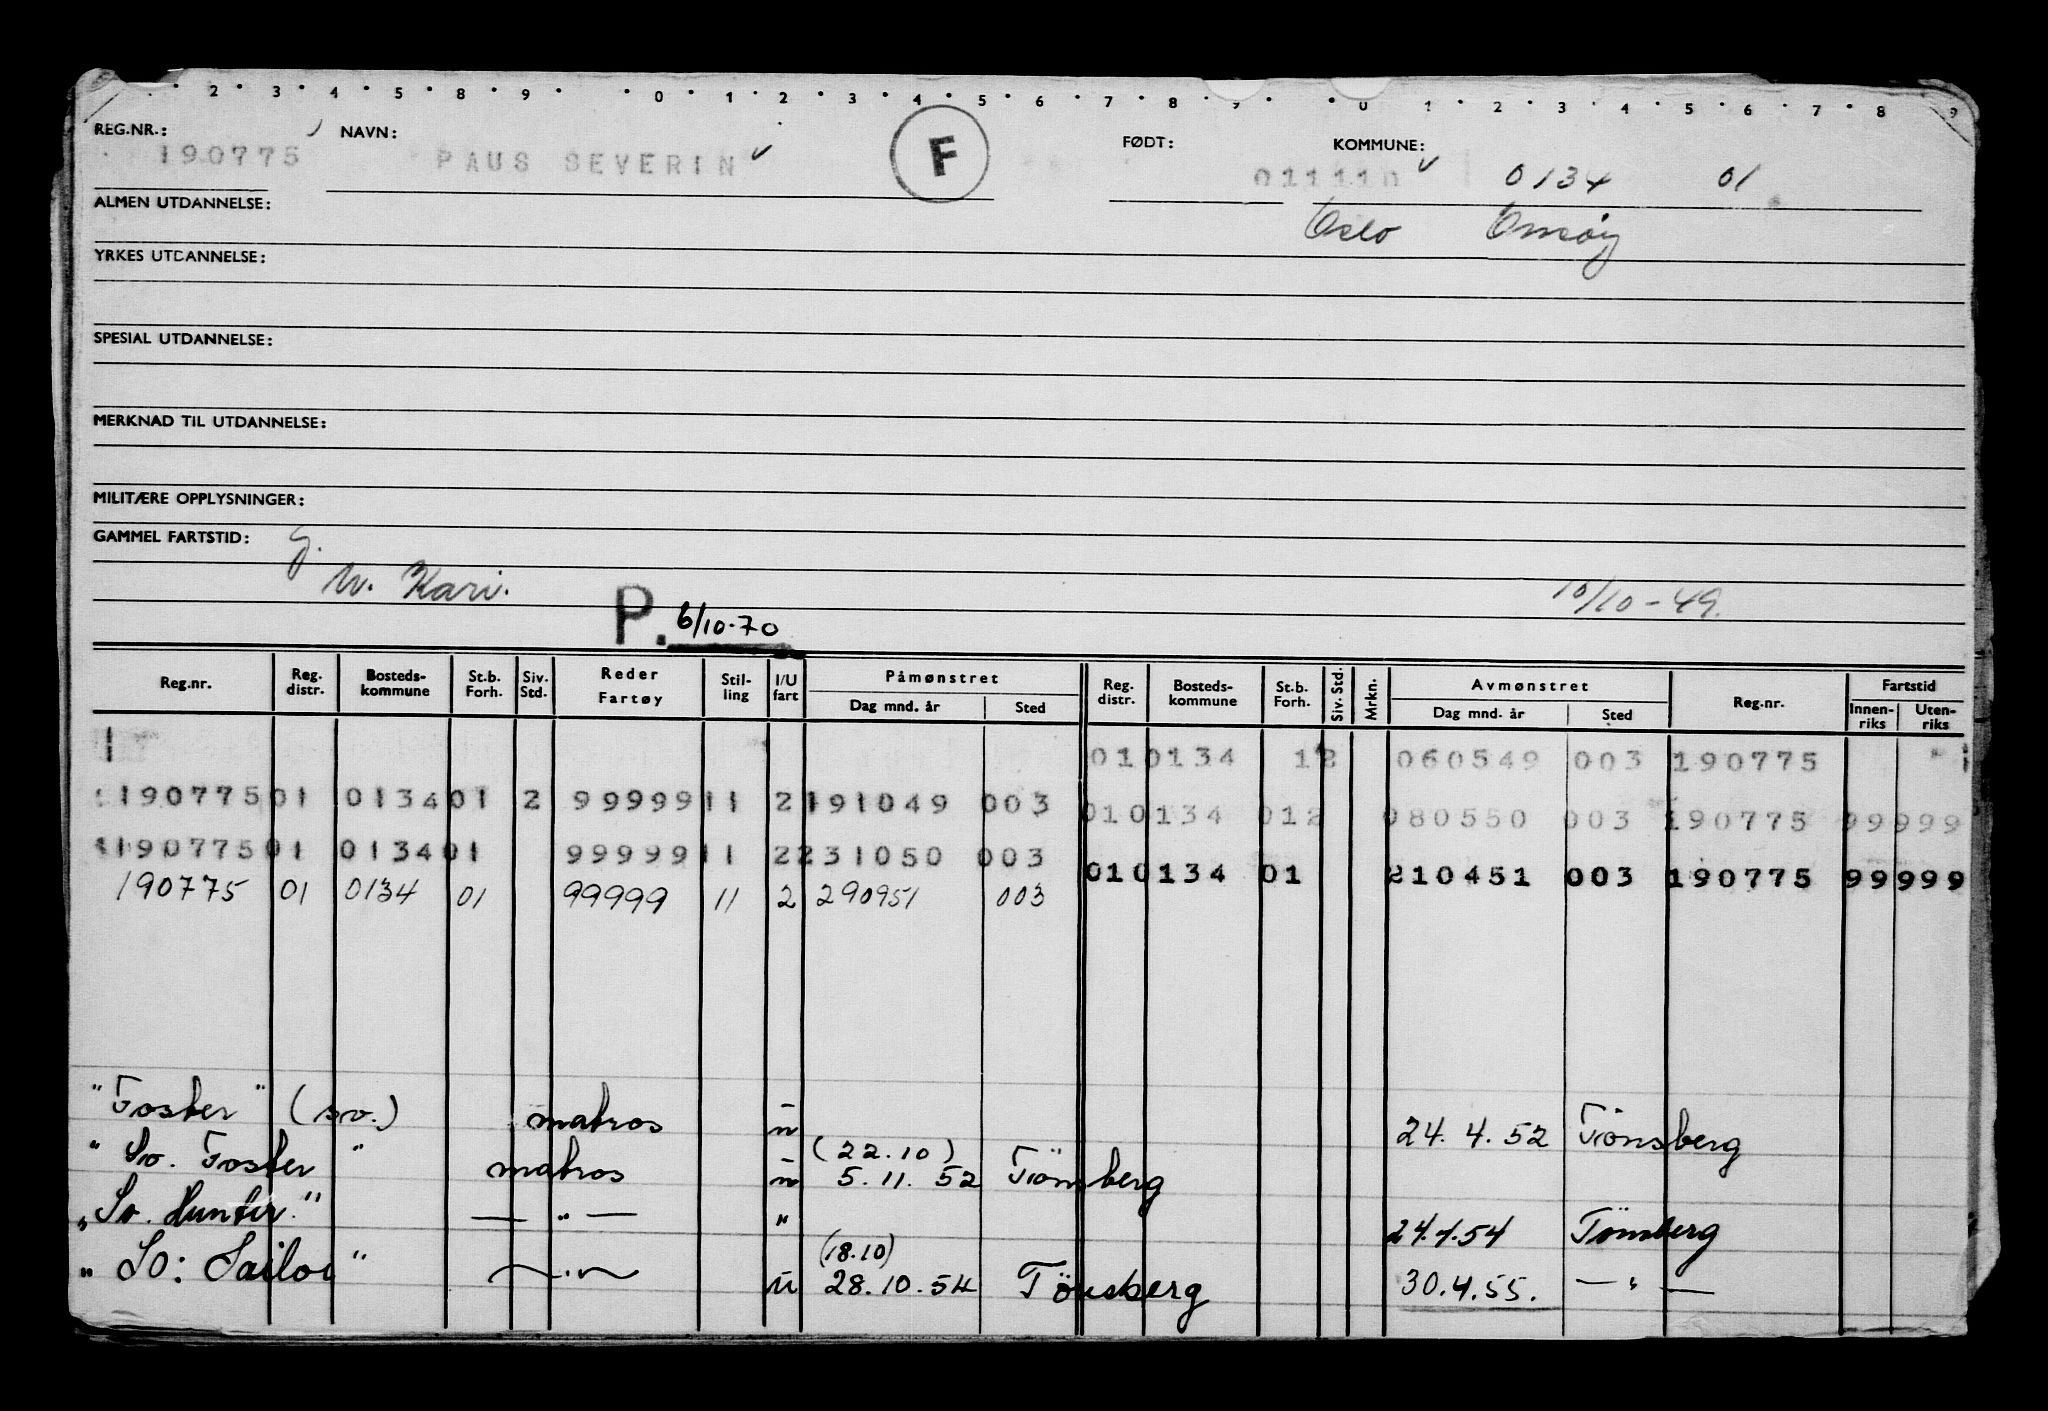 2 3 4 5 8 9 0 1 2 3 4 5 6 7 8 9 0 1 2 3 4 5 6 7 8 9
REG.NR.: NAVN: FØDT: KOMMUNE:
190775 PAUS SEVERIN F 011110 0134 01
ALMEN UTDANNELSE: Oslo
YRKES UTDANNELSE:
SPESIAL UTDANNELSE:
MERKNAD TIL UTDANNELSE:
MILITÆRE OPPLYSNINGER:
GAMMEL FARTSTID: g.
Kari. 10/10-49.
P. 6/10-70
Reg.nr. Reg. distr. Bosteds-kommune St.b. Forh. Siv. Std. Reder Fartøy Stil-ling I/U fart Påmønstret Dag mnd. år Sted Reg. distr. Bosteds-kommune St.b. Forh. Siv. Std. Mrkn. Avmønstret Dag mnd. år Sted Reg.nr. Fartstid Innen-riks Uten-riks
010134 12 060549 003 190775
190775 01 0134 01 2 99999 11 2 191049 003 010134 012 080550 003 190775 99999
190775 01 0134 01 99999 11 2 231050 003 010134 01 210451 003 190775 99999
190775 01 0134 01 99999 11 2 290951 003
"Foster" (sv.) matros u 24.4.52 Tönsberg
"Sv. Foster" matros u (22.10) 5.11.52 Tönsberg
"Sv. Hunter." — " — " 24.4.54 Tönsberg
"Sv: Sailor" — " — u (18.10) 28.10.54 Tönsberg 30.4.55. — " —